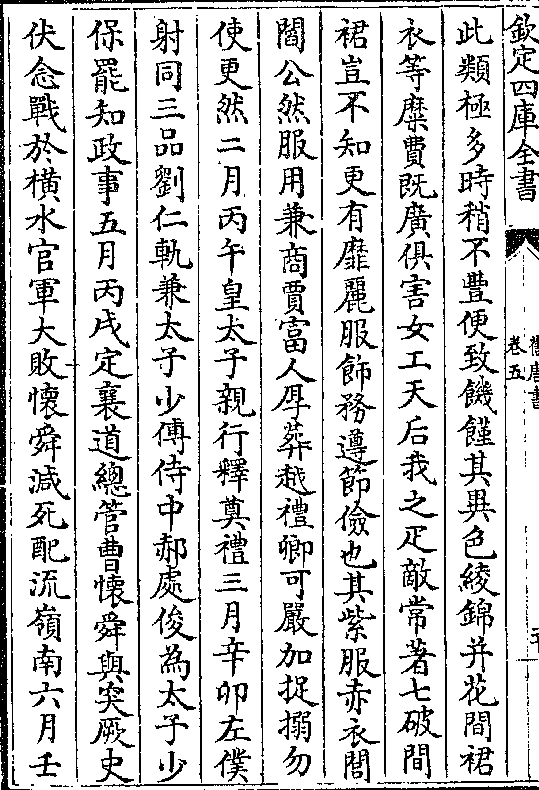 欽定四庫全書
舊唐書
卷五
此類極多時稍不豐便致饑饉其異色綾錦并花間裙
衣等糜費既廣俱害女工天后我之疋敵常著七破間
裙豈不知更有靡麗服飾務遵節儉也其紫服赤衣閭
閻公然服用兼商賈富人厚葬越禮卿可嚴加捉搦勿
使更然二月丙午皇太子親行釋奠禮三月辛卯左僕
射同三品劉仁軌兼太子少傅侍中郝處俊為太子少
保罷知政事五月丙戌定襄道總管曹懷舜與突厥史
伏念戰於橫水官軍大敗懷舜減死配流嶺南六月壬